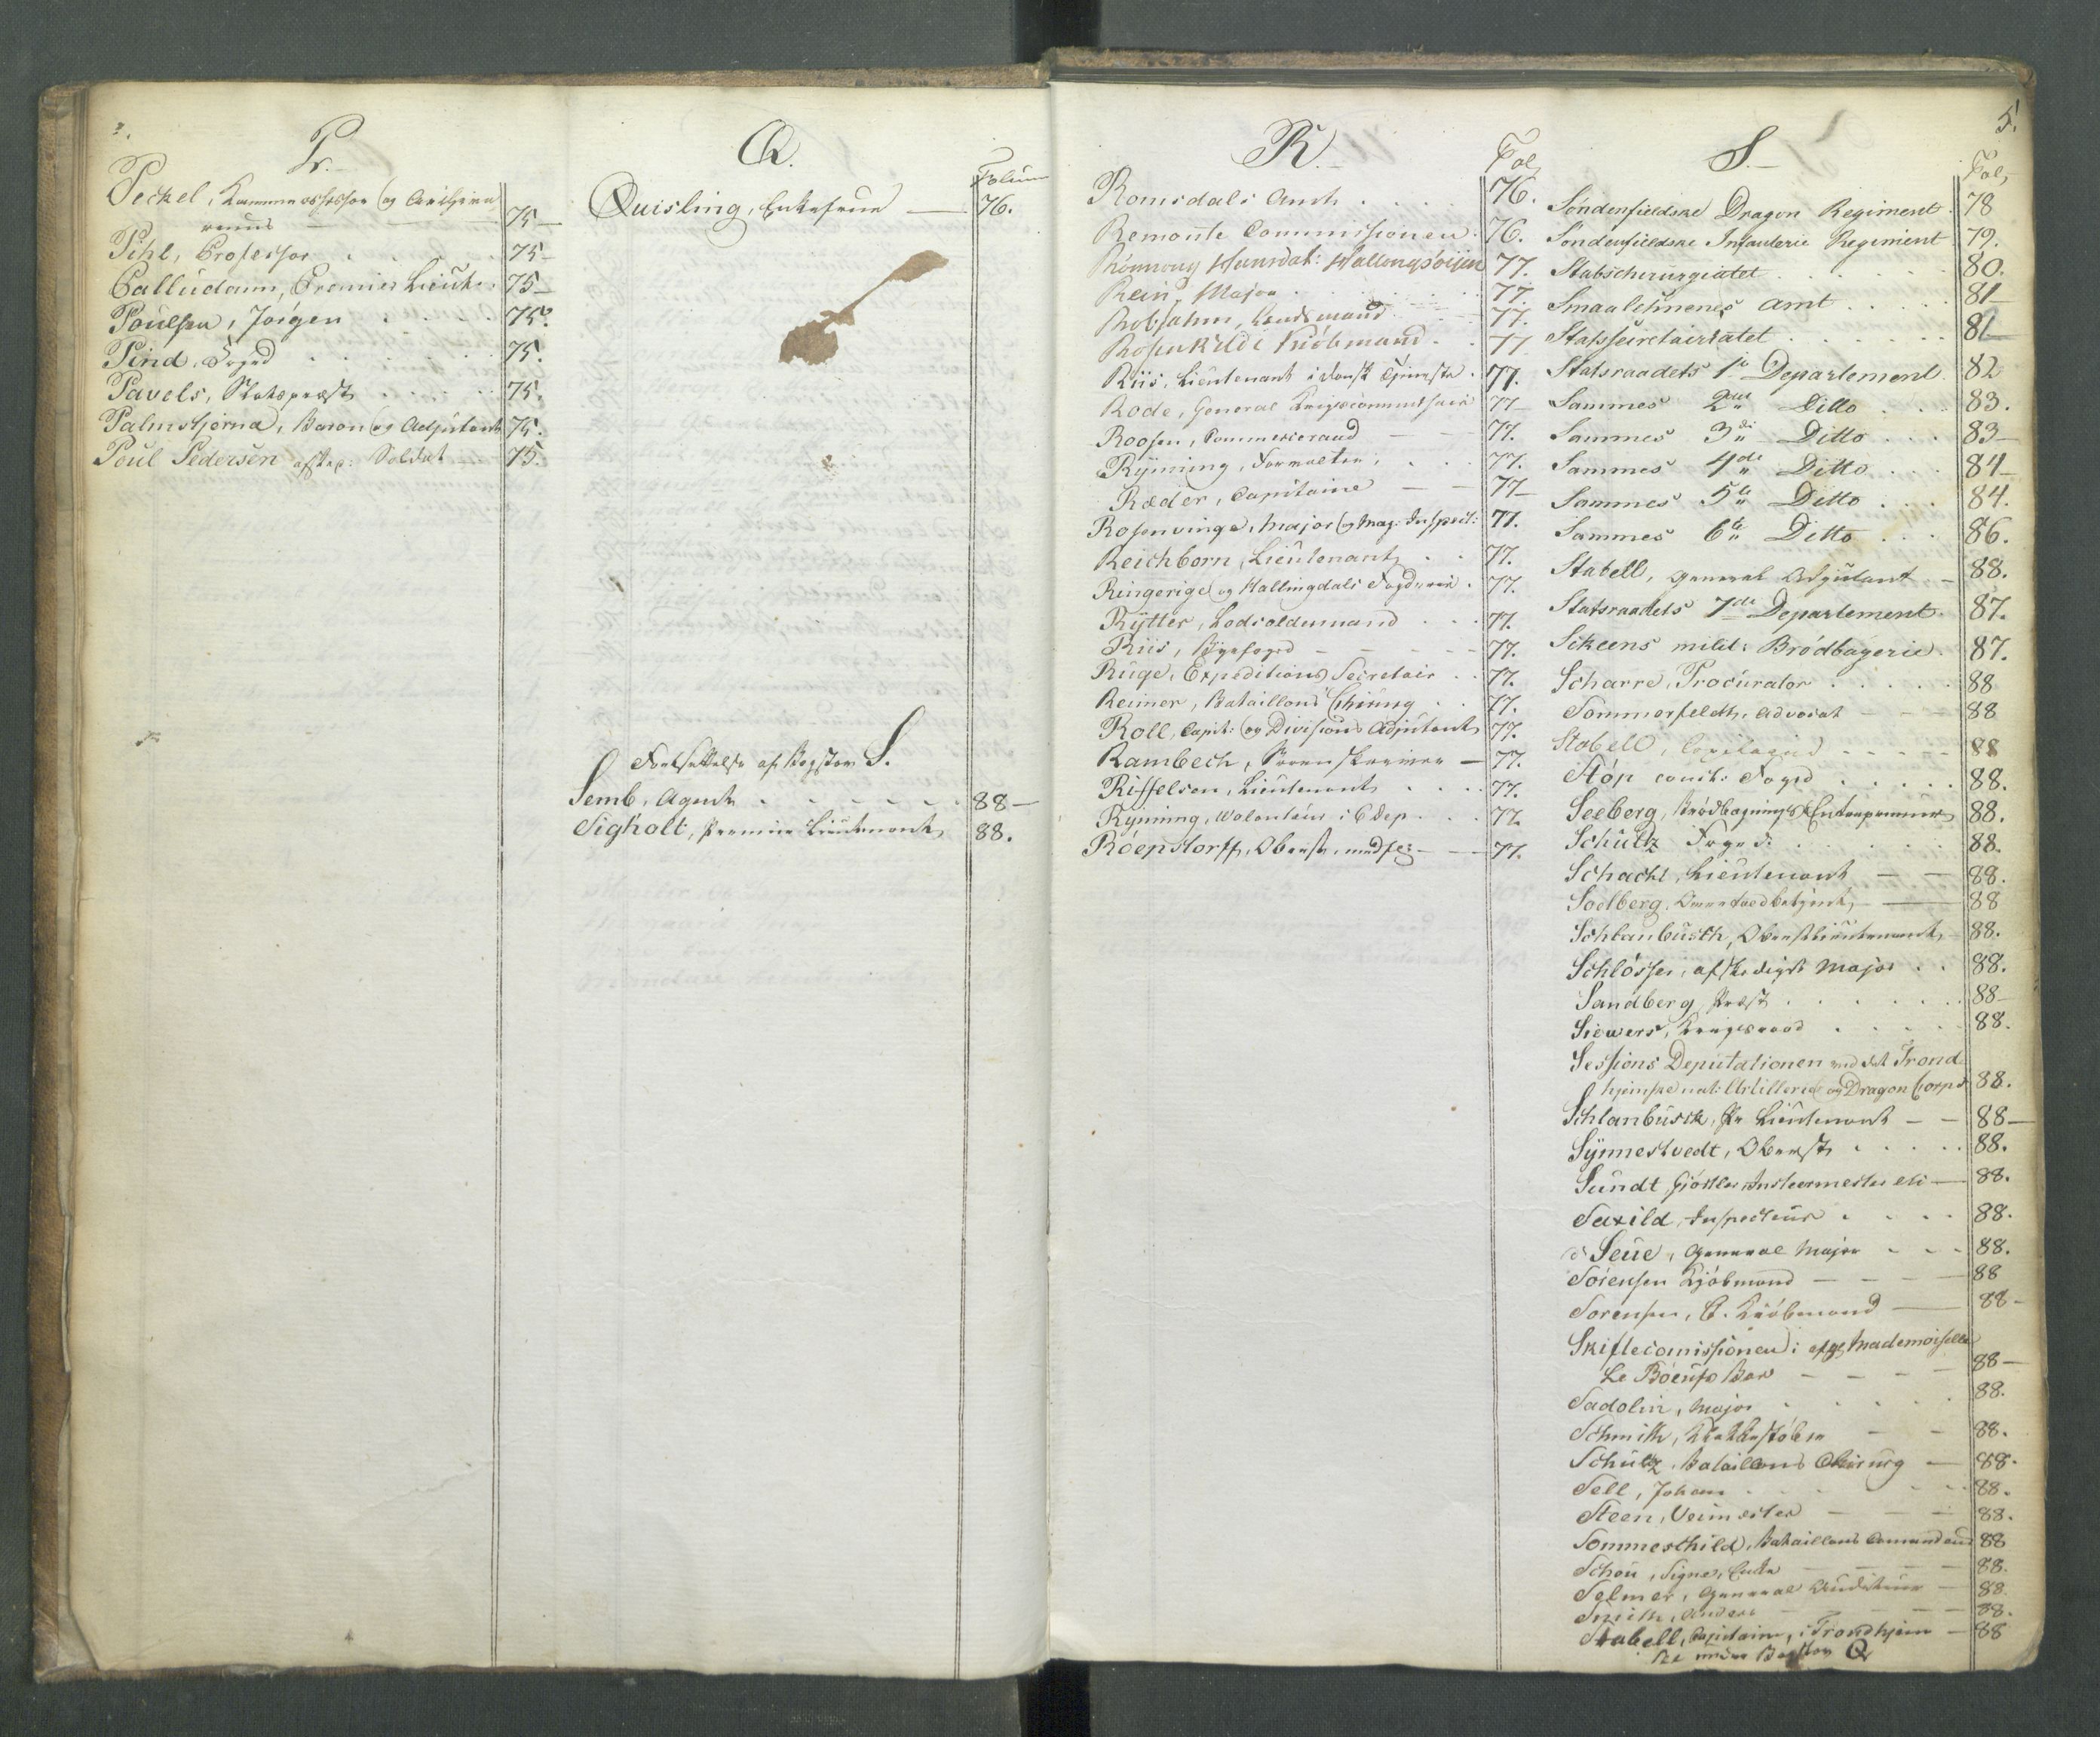 P.
Peckel, Kammerassessor og
75
Pihl, Professor 75
Palludann, Premier Lieut: 75
Poulsen, Jørgen 75.
Pind, Foged 75.
Pavels, Slotspræst 75.
Palmstjerna, Baron og Adjutant 75.
Poul Pedersen afsked: Soldat 75.
Q.
Folium
Quisling, Enkefrue 76.
Fortsættelse af Bogstav S.
Semb, Agent 88
Sigholt, Premier Lieutenant 88.
R.
Fol
Romsdals Amt 76.
Remonte Commissionen 76.
Rønnoug Hansdat: Hallongsøien 77.
Rein, Major 77.
Robsahm, Lensmand 77.
Rosenkilde Kiøbmand 77
Riis, Lieutenant i dansk Tjeneste 77.
Rode, General Krigscommissair 77
Roosen, Commerceraad 77.
Rynning, Forvalter 77.
Ræder, Capitaine 77
Rosenvinge, Major og Mag: Inspect: 77.
Reichborn, Lieutenant 77.
Ringerige og Hallingdals Fogderie 77.
Rytter, Lodsoldermand 77.
Riis, Byefoged 77.
Ruge, Expeditions Secretair 77.
Reimer, Bataillons Chirurg 77.
Roll, Capit: og Divisions Adjutant 77.
Rambech, Sorenskriver 77.
Riffelsen, Lieutenant 77.
Rynning, Volontair i 6 Dep. 77.
Röepstorff, Oberst, 77.
5.
S.
Fol
Søndenfieldske Dragon Regiment 78
Søndenfieldske Infanterie Regiment 79.
Stabschirurgiatet 80.
Smaalehnenes Amt 81
Statssecretariatet 81
Statsraadets 1te Departement 82
Sammes 2det Ditto 83.
Sammes 3die Ditto 83
Sammes 4de Ditto 84
Sammes 5te Ditto 84.
Sammes 6te Ditto 86.
Stabell, General Adjutant 88.
Statsraadets 7de Departement 87.
Skeens milit: Brødbagerie 87.
Scharre, Procurator 88
Sommerfeldt, Advocat 88
Stabell, 88
Støp const: Foged 88.
Seeberg, Brødbagnings Entrepreneur 88.
Schultz Foged: 88.
Schacht, Lieutenant 88.
Sodberg, 88
Schlanbusch, Oberstlieutenant 88.
Schløsser, afskediget Major 88.
Sandberg, Præst 88
Siewers, Krigsraad 88.
Sessions Deputationen ved det Trond
hjemske nat: Artillerie og Dragon Corps 88.
Schlanbusch, Pr Lieutenant 88
Synnestvedt, Oberst 88.
Sundt, Gjørtler 88.
Saxild, Inspecteur 88.
d Seue, General Major 88.
Sørensen Kjøbmand 88
Sorensen, C. Kiøbmand 88
Skiftecomissionen i afg: Mademoiselle
Le Böeufs Boe 88
Sadolin, Major 88.
Schmith, 88.
Schultz, Bataillons Chirurg 88.
Sell, Johan 88.
Steen, Veimester 88.
Sommerschild, Bataillons 88
Schou, Signe, Enke 88.
Selmer, General Auditeur 88
Smith, Anders 88.
Stabell, Capitaine, i Trondhjem 88
See under Bogstav Q